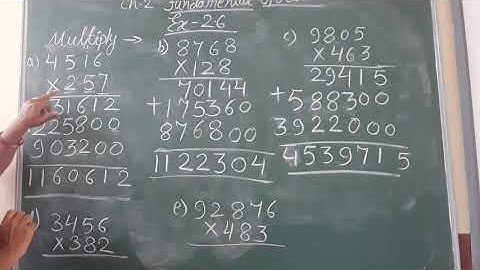 Ch-2 Fundamental
Ex-26
Multiply →
a) 4516
×257
31612
225800
903200
1160612
b) 8768
×128
70144
+175360
876800
1122304
c) 9805
×463
29415
+588300
3922000
4539715
d) 3456
×382
e) 92876
×483